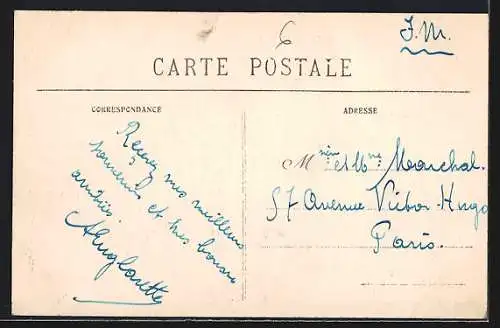 6
F. M.
CARTE POSTALE
CORRESPONDANCE
Recevez mes meilleurs
souvenirs et mes bonnes
amitiés.
ADRESSE
M et Mme Marchal.
57 Avenue Victor-Hugo
Paris.